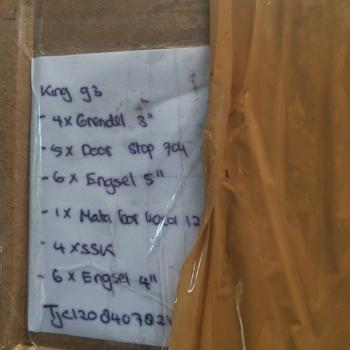 King 93
- 4x Grendel 3"
- 5x Door Stop 704
- 6x Engsel 5"
- 1x Mata bor 12
- 4xSSK
- 6x Engsel 4"